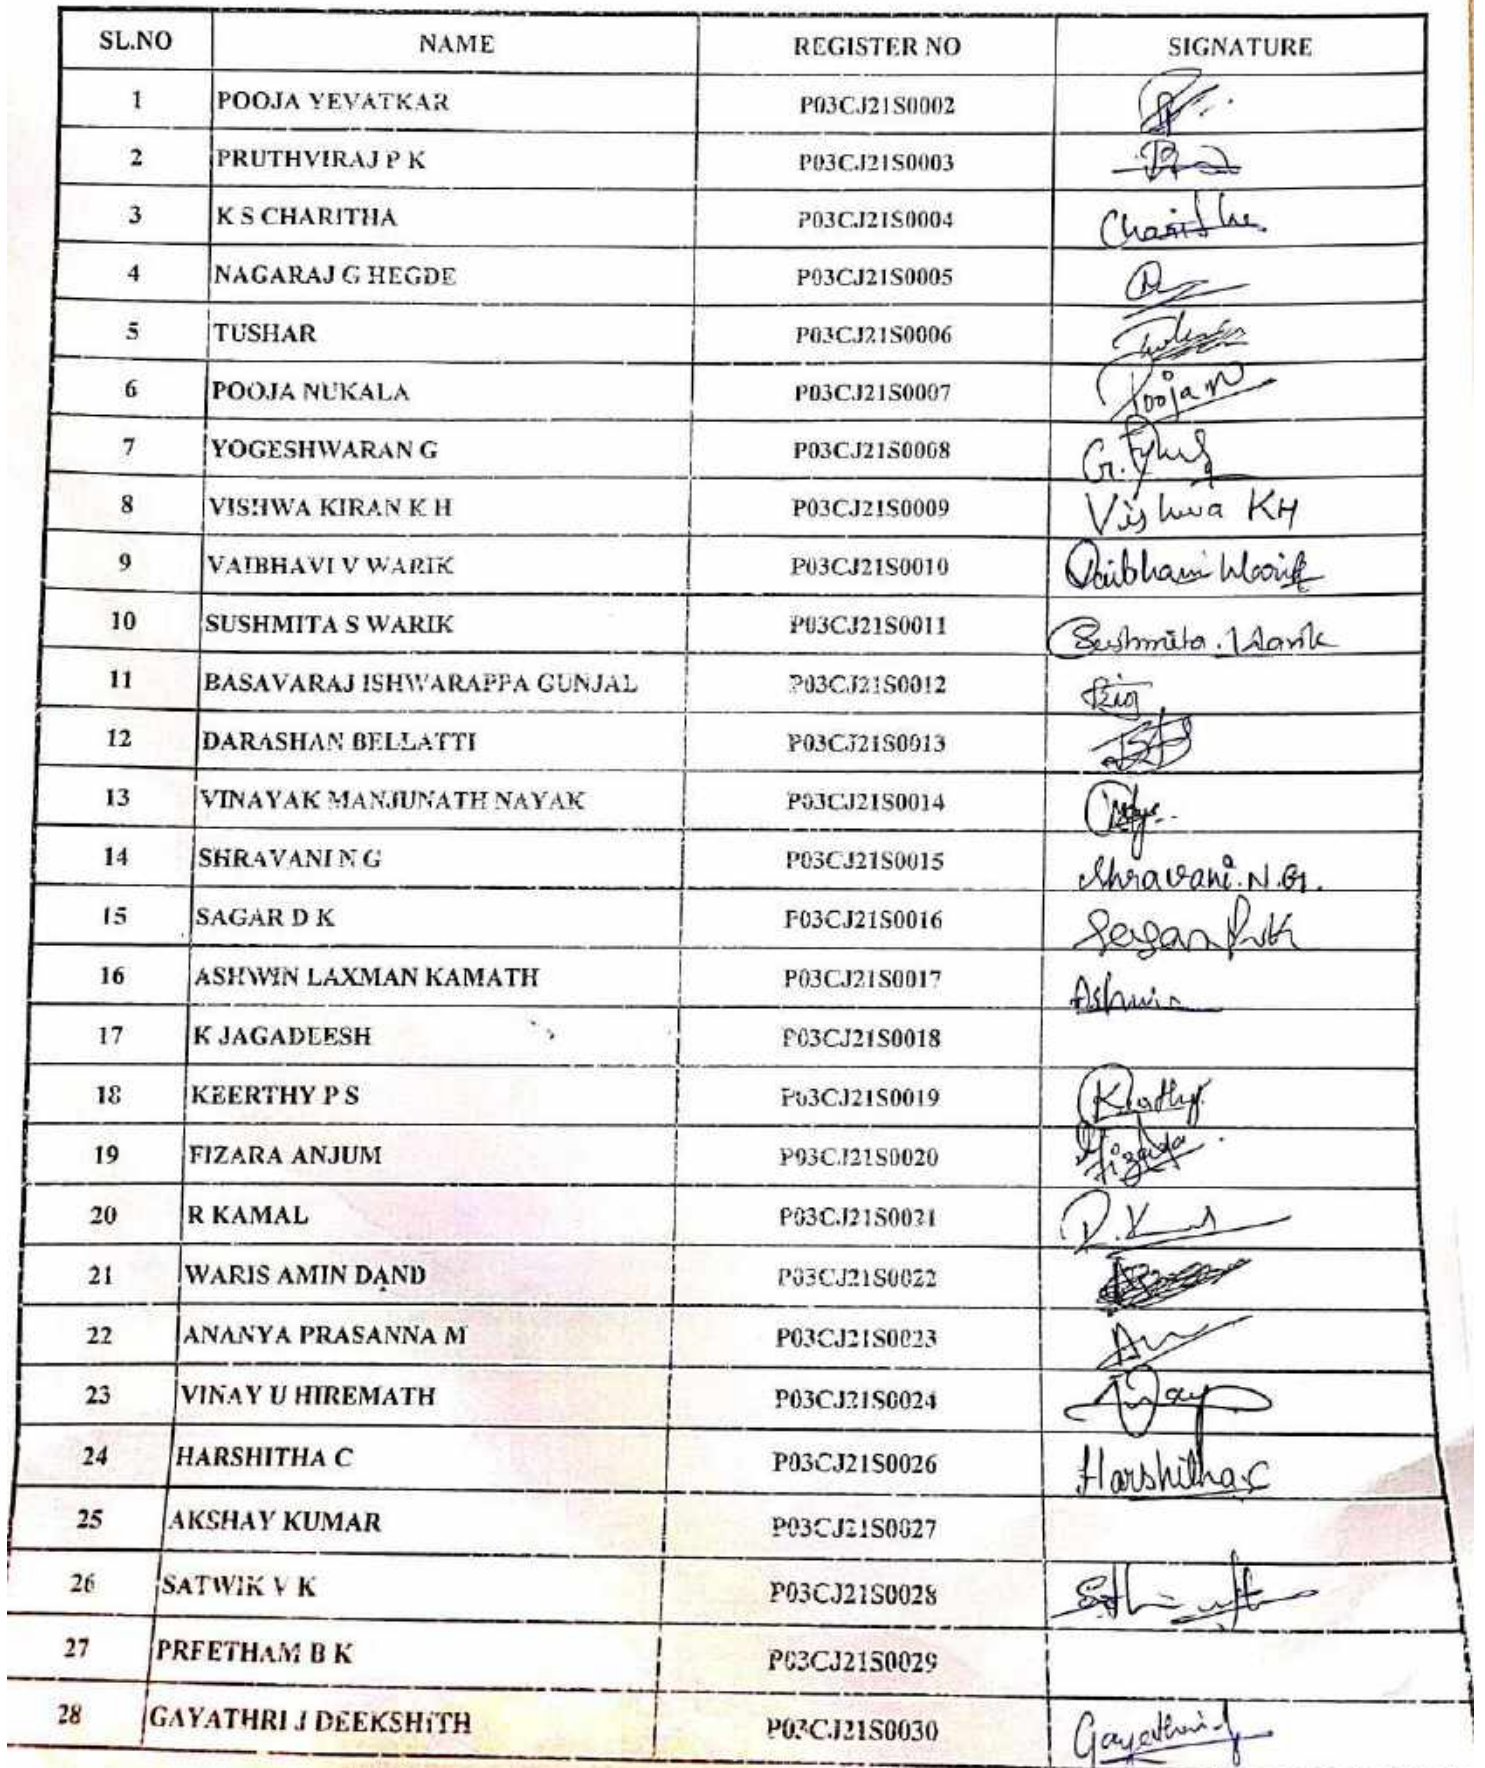 SL.NO NAME REGISTER NO SIGNATURE
1 POOJA YEVATKAR P03CJ21S0002
2 PRUTHVIRAJ P K P03CJ21S0003
3 K S CHARITHA P03CJ21S0004 Charitha
4 NAGARAJ G HEGDE P03CJ21S0005
5 TUSHAR P03CJ21S0006
6 POOJA NUKALA P03CJ21S0007 Pooja N
7 YOGESHWARAN G P03CJ21S0008
8 VISHWA KIRAN K H P03CJ21S0009 Vishwa KH
9 VAIBHAVI V WARIK P03CJ21S0010 Vaibhavi Warik
10 SUSHMITA S WARIK P03CJ21S0011 Sushmita. Warik
11 BASAVARAJ ISHWARAPPA GUNJAL P03CJ21S0012
12 DARASHAN BELLATTI P03CJ21S0013
13 VINAYAK MANJUNATH NAYAK P03CJ21S0014
14 SHRAVANI N G P03CJ21S0015 Shravani.N.G.
15 SAGAR D K P03CJ21S0016
16 ASHWIN LAXMAN KAMATH P03CJ21S0017 Ashwin
17 K JAGADEESH P03CJ21S0018
18 KEERTHY P S P03CJ21S0019
19 FIZARA ANJUM P03CJ21S0020
20 R KAMAL P03CJ21S0021
21 WARIS AMIN DAND P03CJ21S0022
22 ANANYA PRASANNA M P03CJ21S0023
23 VINAY U HIREMATH P03CJ21S0024
24 HARSHITHA C P03CJ21S0026 Harshitha.C
25 AKSHAY KUMAR P03CJ21S0027
26 SATWIK V K P03CJ21S0028
27 PREETHAM B K P03CJ21S0029
28 GAYATHRI J DEEKSHITH P03CJ21S0030